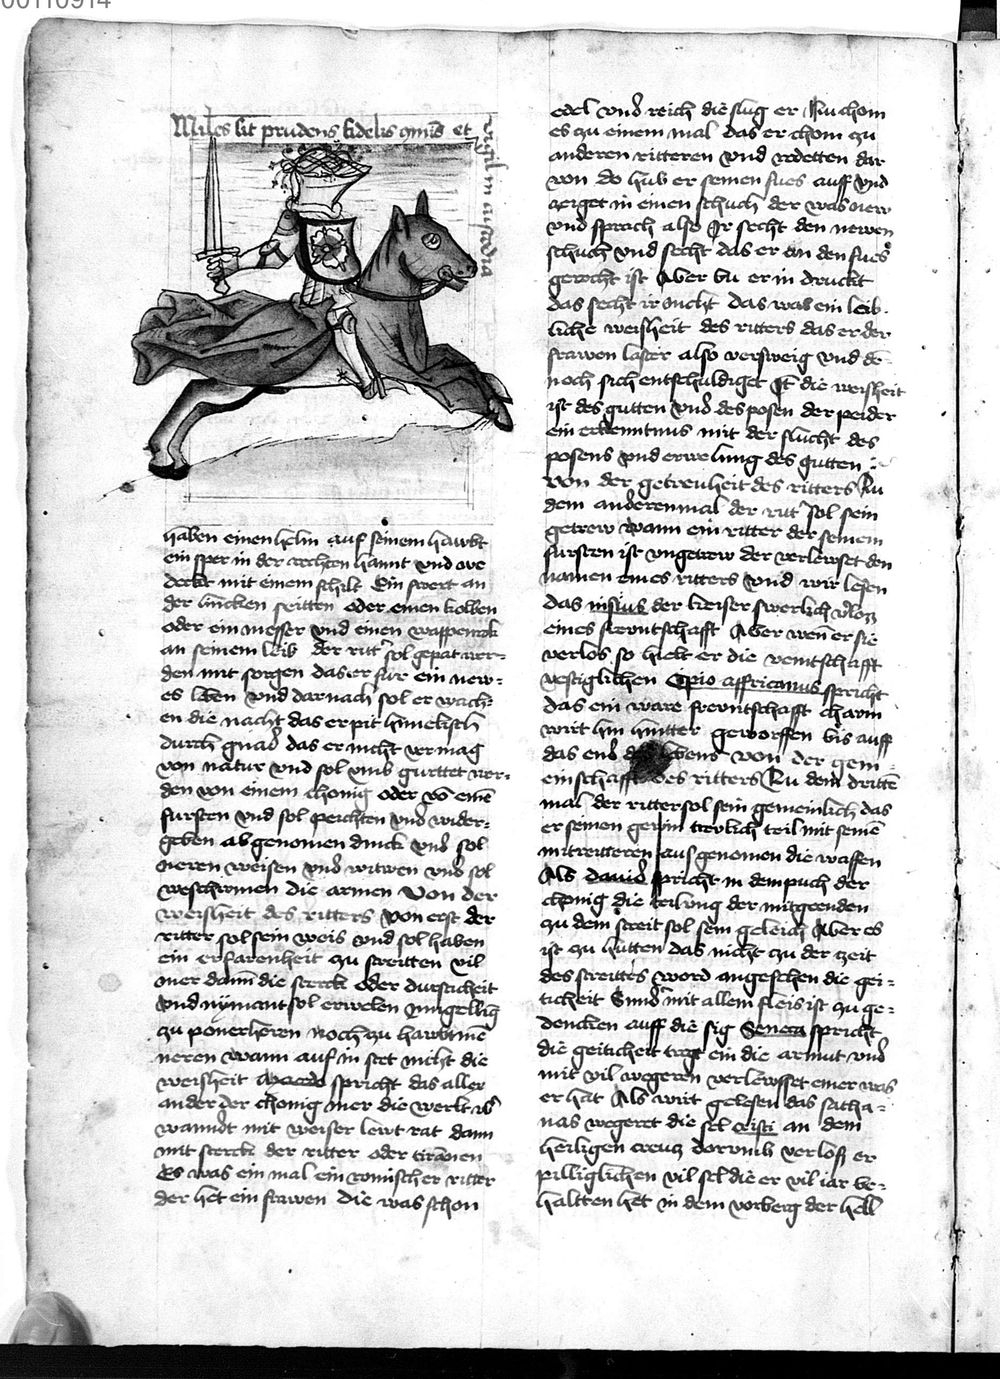 00110914
Miles sit prudens fidelis omnis et
vigil in custodia
haben einen helm auf seinem hawbt
ein sper in der rechten hannt vnd we
deckt mit einem schilt Ein swert an
der lincken seitten oder einen kolben
oder ein messer vnd einen wappenrok
an seinem leib der ritt sol gepat wer=
den mit sorgen das er fur ein new=
es leben vnd darnach sol er wach=
en die nacht das er pit himelisch
durch gnad das er nicht vermag
von natur vnd sol vmb gurttet wer=
den von einem chonig oder vo eine
fursten vnd sol peichten vnd wider=
geben ab genomen dinck vnd sol
neren weisen vnd witwen vnd sol
weschirmen die armen Von der
weisheit des ritters Von erst der
ritter sol sein weis vnd sol haben
ein erfarenheit zu streitten vil
mer dann die sterck oder durstickeit
vnd nymant sol erwelen
zu ponerherren noch zu hawbtme
neren wann auf in stet nicht die
weisheit spricht das aller
ander der chonig mer die werlt
wanndt mit weiser lewt rat dann
mit sterck der ritter oder tirannen
Es was ein mal ein romischer ritter
der het ein frawen die was schon
edel vnd reich die slug er Nu chom
es zu einem mal das er chom zu
anderen ritteren vnd redetten dar
von do hub er seinen fues auff vnd
zeiget in einen schuch der was new
vnd sprach also Ir secht den newen
schuch vnd secht das er an den fues
gerecht ist Aber wu er in druckt
das secht ir nicht das was ein leib=
liche weisheit des ritters das er der
frawen laster also versweig vnd de=
noch sich entschuldiget It die weisheit
ist des gutten vnd des posen der peider
ein erkenntnus mit der flucht des
posens vnd erwelung des gutten
von der getreuheit des ritters Zu
dem anderen mal der ritt sol sein
getrew wann ein ritter der seinem
fursten ist vngetrew der verlewset den
namen eines ritters vnd wir lesen
das der keiser swerlich vloz
eines frewntschafft Aber wen er sie
verlos so hielt er die veintschafft
vestiglichen Cipio affricanus spricht
das ein ware frewntschafft
wirt hin hintter geworffen bis auff
das end des lebens von der gem=
einschafft des ritters Zu dem dritte
mal der ritter sol sein gemeinlich das
er seinen gewin treulich teil mit seine
mitreitteren aus genomen die waffen
Als dauid spricht in dem puch der
chonig die teilung der mitgeenden
zu dem streit sol sein geleich Aber es
ist zu hutten das nicht zu der zeit
des streittes word angesehen die gei=
tickeit Sund mit allem fleis ist zu ge=
dencken auff die sig Seneca spricht
die geitickeit tregt ein die armut vnd
mit vil wegeren verlewsset einer was
er hat Als wirt gelesen das satha=
nas wegeret die sel cristi an dem
heiligen creutz dorumb verlos er
pilliglichen vil sel die er vil iar be=
haltten het in dem vorberg der hell